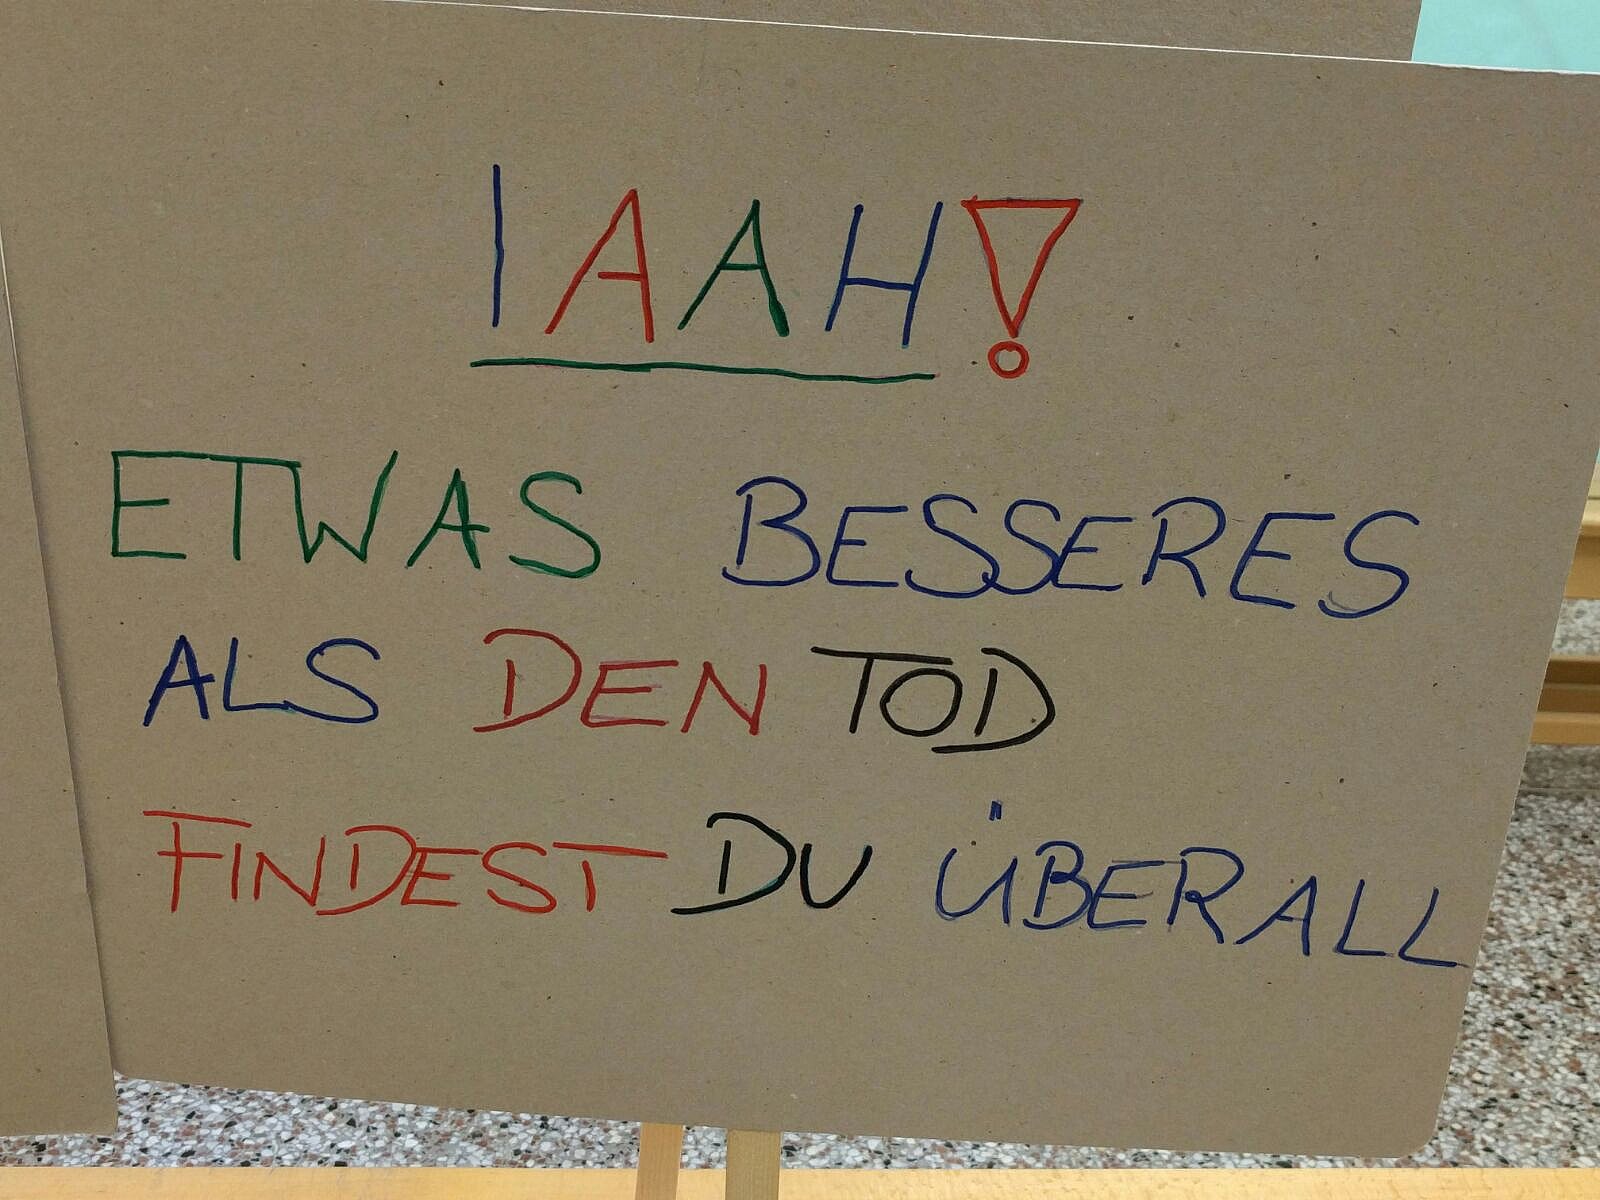 IAAH!
ETWAS BESSERES
ALS DEN TOD
FINDEST DU ÜBERALL